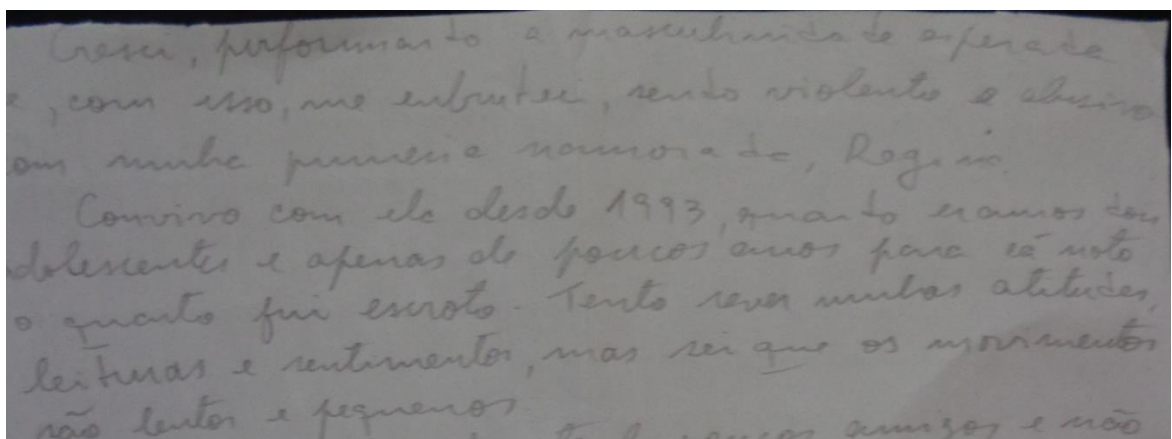 Cresci, performando a masculinidade esperada
e, com isso, me embruteci, sendo violento e abusivo
om minha primeira namorada, Regina.
Convivo com ela desde 1993, quando eramos dois
dolescentes e apenas de poucos anos para cá noto
o quanto fui escroto. Tento rever minhas atitudes,
leituras e sentimentos, mas sei que os movimentos
são lentos e pequenos.
amigos e não